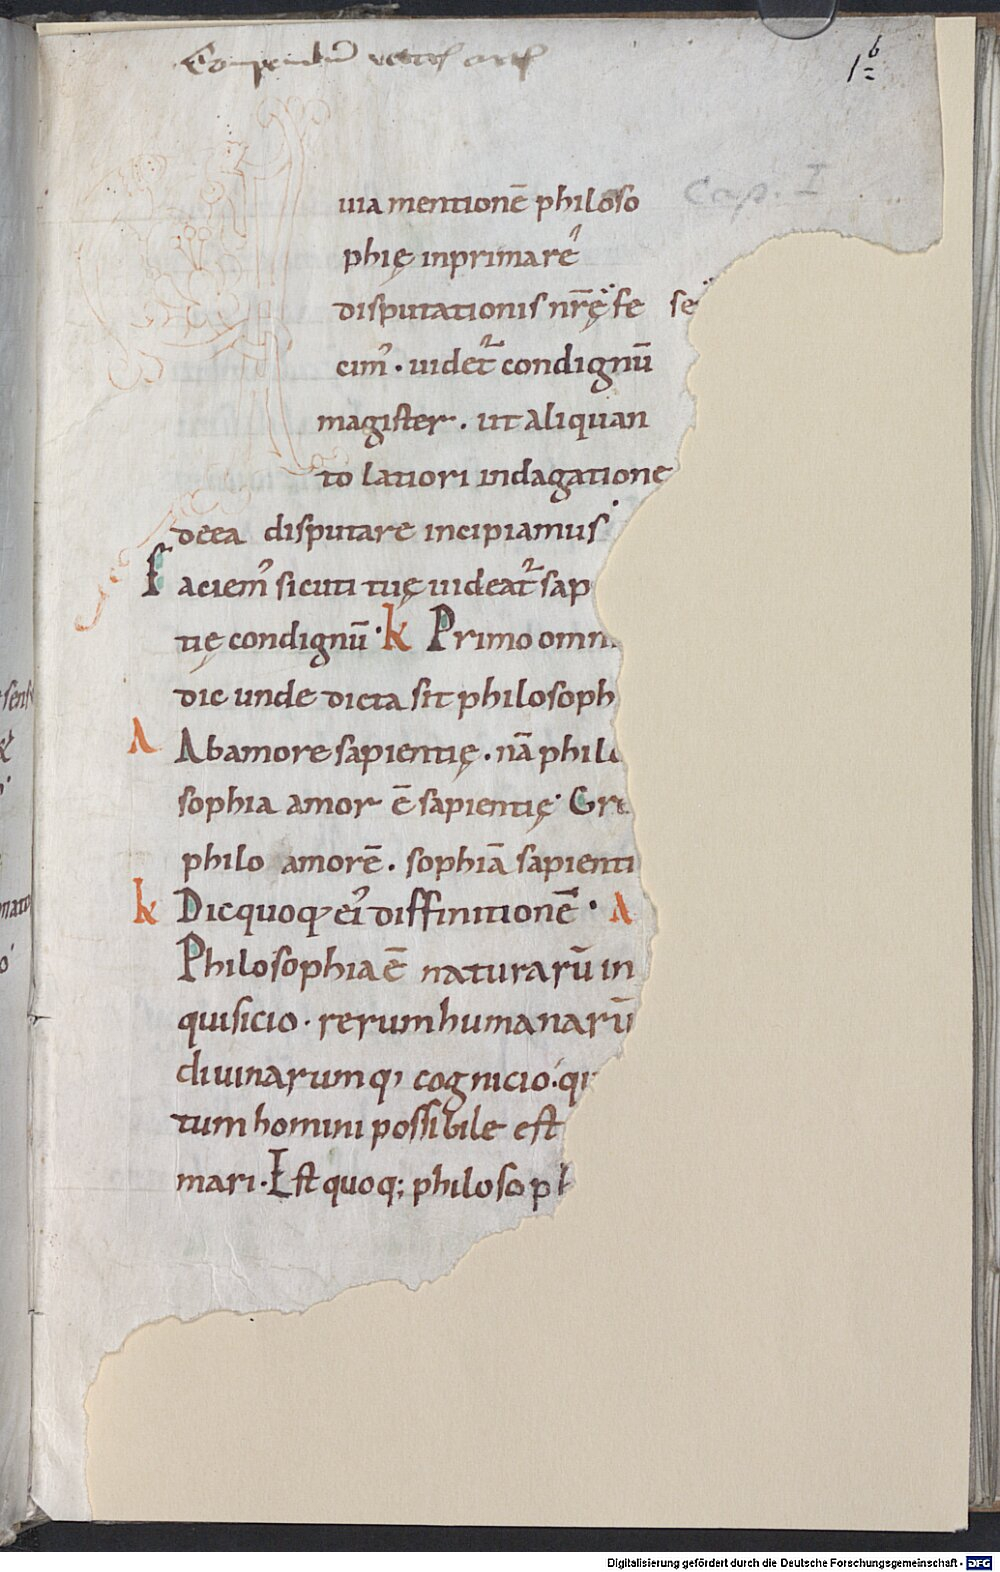 1 b
Cap. I
uia mentionē philoso
phię inprimare
disputationis nr̄ę fe se
cim᾽ · uidet᷑ condignū
magister · ut aliquan
to latiori indagatione
de ea disputare incipiamus
Faciem᾽ sicuti tuę uideat᷑ sap
tię condignū · k Primo omn
dic unde dicta sit philosoph
A Ab amore sapientię · nā philo
sophia amor ē sapientię · Gre
philo amorē · sophiā sapienti
k Dic quoq; ei᾽ diffinitionē · A
Philosophia ē naturarū in
quisicio · rerum humanarū
diuinarumq; cognicio · qu
tum homini possibile est
mari · Est quoq; philosoph
Digitalisierung gefördert durch die Deutsche Forschungsgemeinschaft - DFG